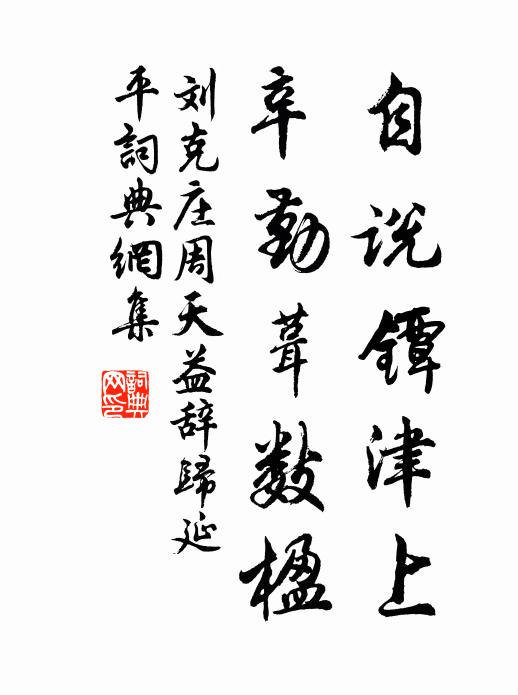 自说镡津上
辛勤葺数楹
刘克庄周天益辞歸延
平詞典網集
詞典網印